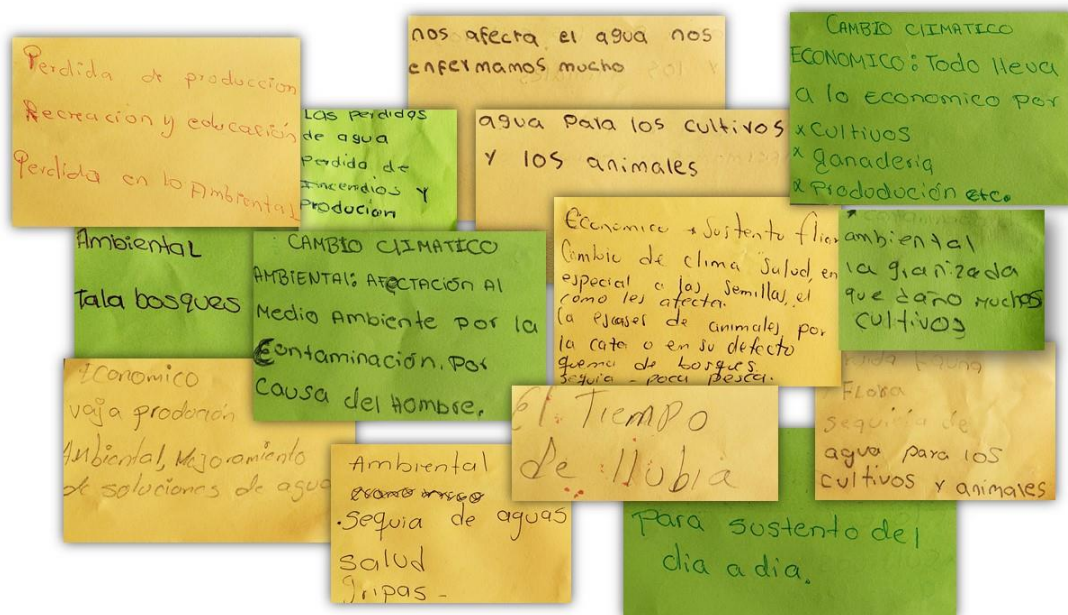 Perdida de produccion
Recreacion y educación
Perdida en lo Ambiental
nos afecta el agua nos
enfermamos mucho
CAMBIO CLIMATICO
ECONOMICO: Todo lleva
a lo economico por
x cultivos
x ganaderia
x prododución etc.
Las perdidas
de agua
perdida de
incendios y
producion
agua para los cultivos
y los animales
Ambiental
Tala bosques
CAMBIO CLIMATICO
AMBIENTAL: AFECTACIÓN Al
Medio Ambiente por la
Contaminación. Por
Causa del Hombre.
Economico + Sustento
Cambio de clima Salud, en
especial a las semillas, el
como les afecta.
la escases de animales, por
la caza o en su defecto
quema de bosques
sequia - poca pesca.
ambiental
la granizada
que daño muchos
cultivos
Economico
vaja produción
Ambiental, Mejoramiento
de soluciones de agua
Ambiental
.sequia de aguas
salud
gripas -
El Tiempo
de llubia
Flora
sequiria de
agua para los
cultivos y animales
para sustento del
dia a dia.